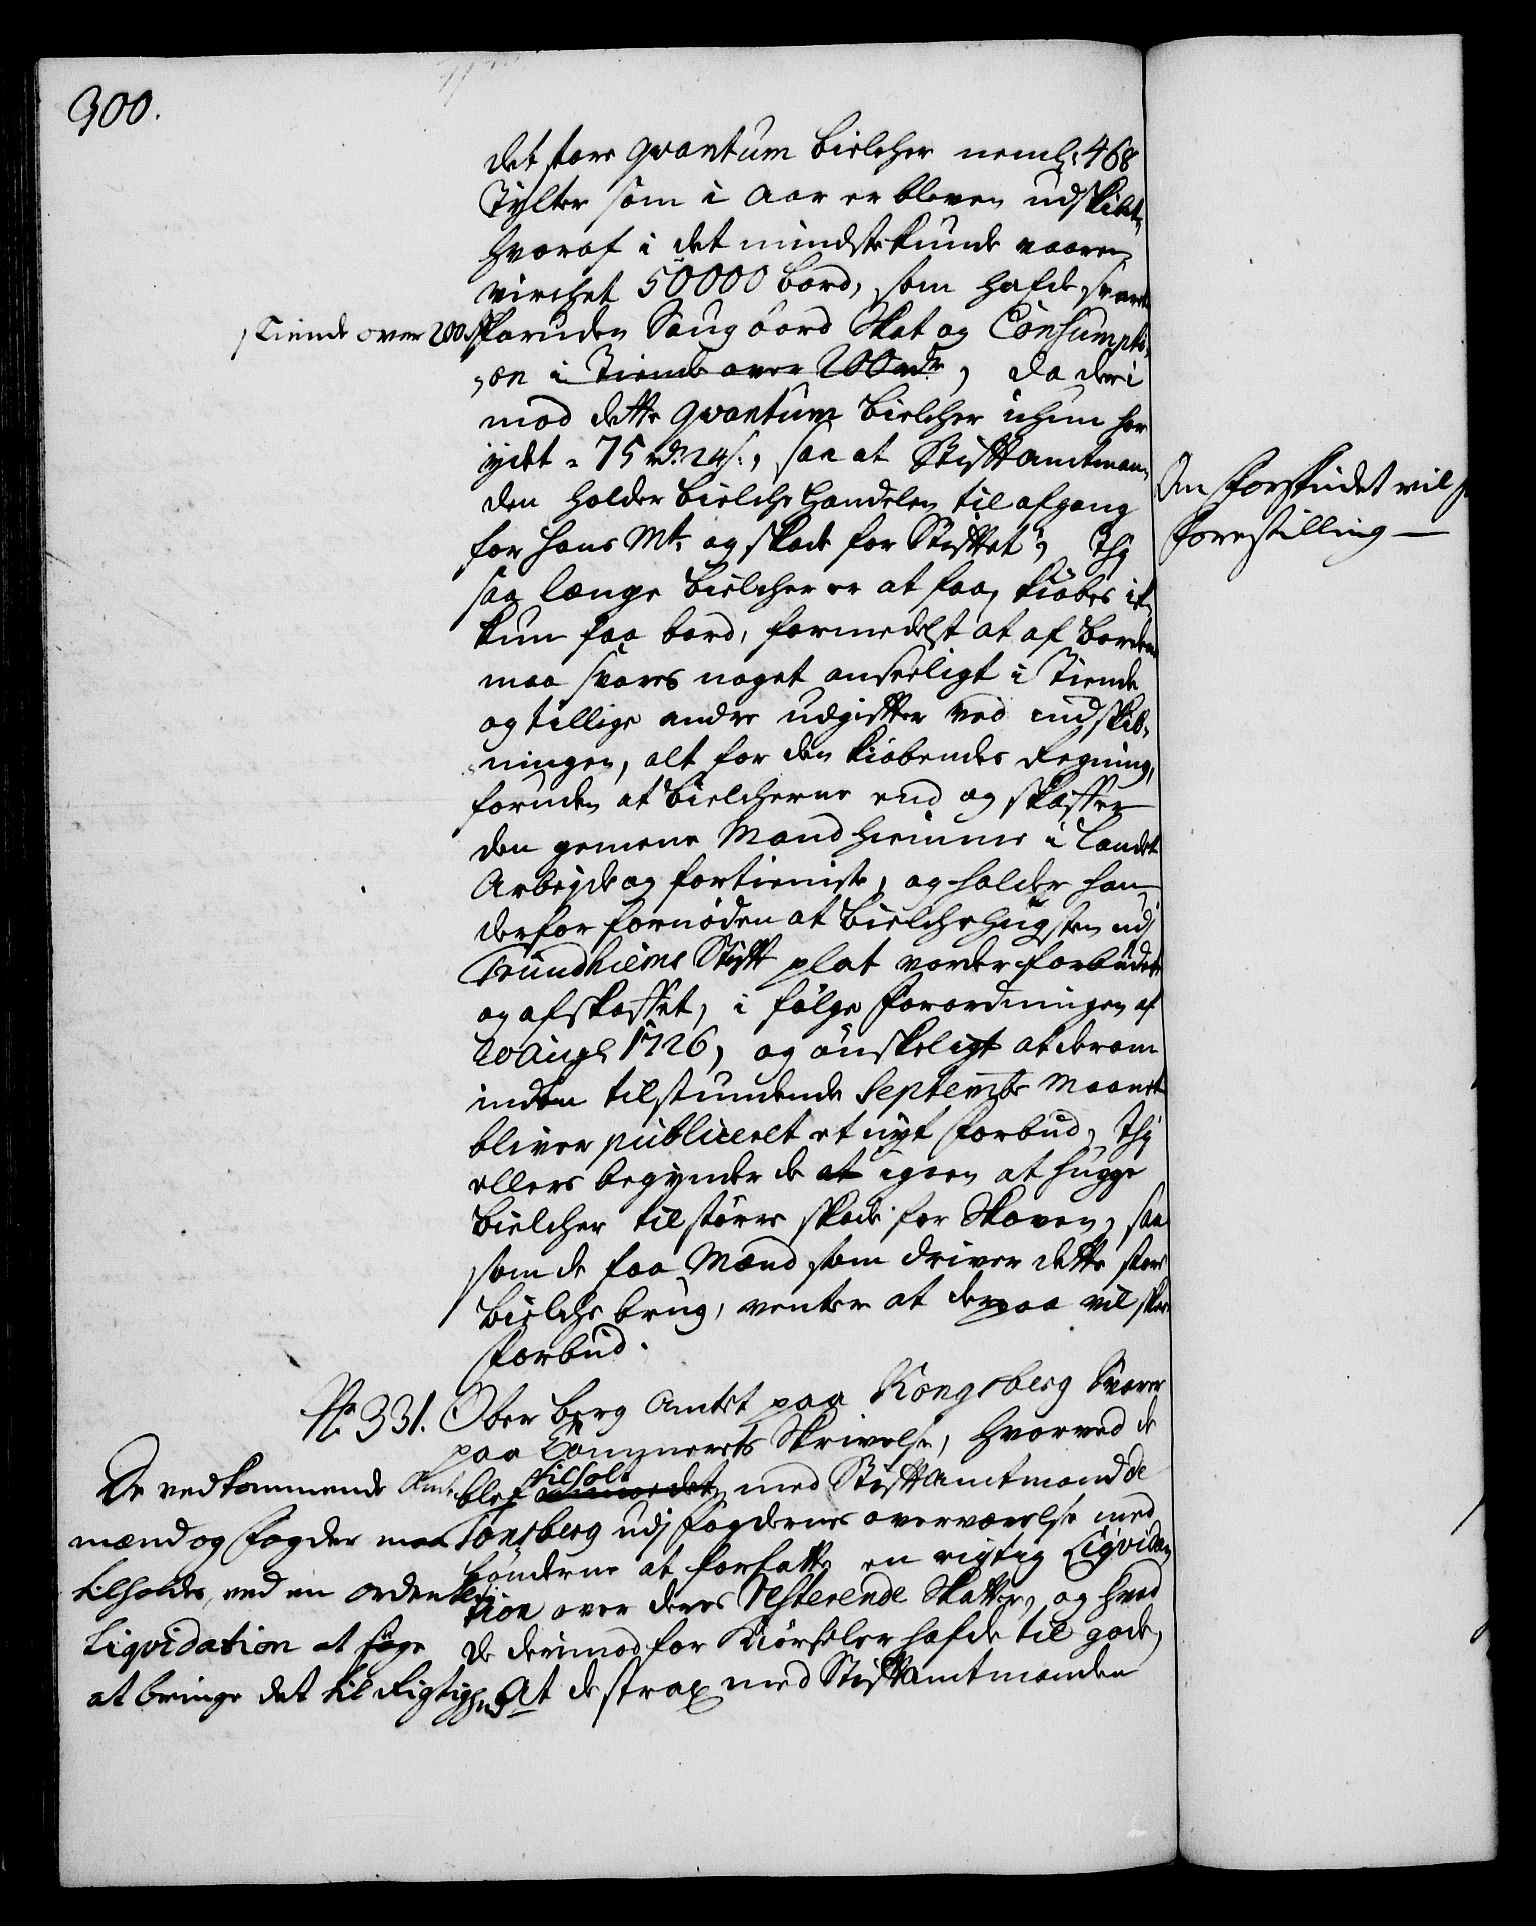 300.
det store qvantum Bielcher neml: 468
Tylter som i Aar er bleven udskibt,
hvoraf i det mindste kunde vaaren
virchet 50000 bord, som hafde svaret
/Tiende over 200 rd/ foruden Saug bords Skat og Consumpti„
„on i Tiende over 200 rdr, da deri
mod dette qvantum Bielcher ichun har
ydet 75 rd. 24 s., saa at Stiftamtman„
den holder Bielche Handelen til afgang
for hans Mt. og skade for Stiftet, Thj
saa længe Bielcher er at faa, kiøbes ik„
kun faa bord, formedelst at af Bordene
maa svares noget anseeligt i Tiende
og tillige andre udgifter ved indskib„
„ningen, alt for den kiøbendes Regning,
foruden at Bielcherne end og skaffer
den gemene Mand hiemme i Landet
Arbejde og fortieniste, og holder han
derfor fornøden at Bielchehugsten udj
Trundhiems Stift plat vorder forbudet
og afskaffet, i følge Forordningen af
20 Aug. 1726, og ønskeligt at derom
inden tilstundende Septembr Maanet
bliver publiceret et nyt Forbud, Thj
ellers begynder de at igien at hugge
Bielcher til større skade for Skoven, saa
som de faa Mænd som driver dette store
Bielche brug, venter at derpaa vil skee
Forbud.
No 331. Ober Berg Amtet paa Kongsberg Svarer
paa Cammerets Skrivelse, hvorved de
blef tilholt med Stiftamtmand de
Tonsberg udj Fogdernes overværelse med
bønderne at forfatte en rigtig Liqvida„
tion over deres Resterende Skatter, og hvad
de derimod for Kiørseler hafde til gode,
At de strax med Stiftamtmanden
De vedkommende Amt
mænd og Fogder maa
tilholdes, ved en ordentlig
Liqvidation at søge
at bringe det til Rigtighed
Om Forbudet vil
Forestilling —